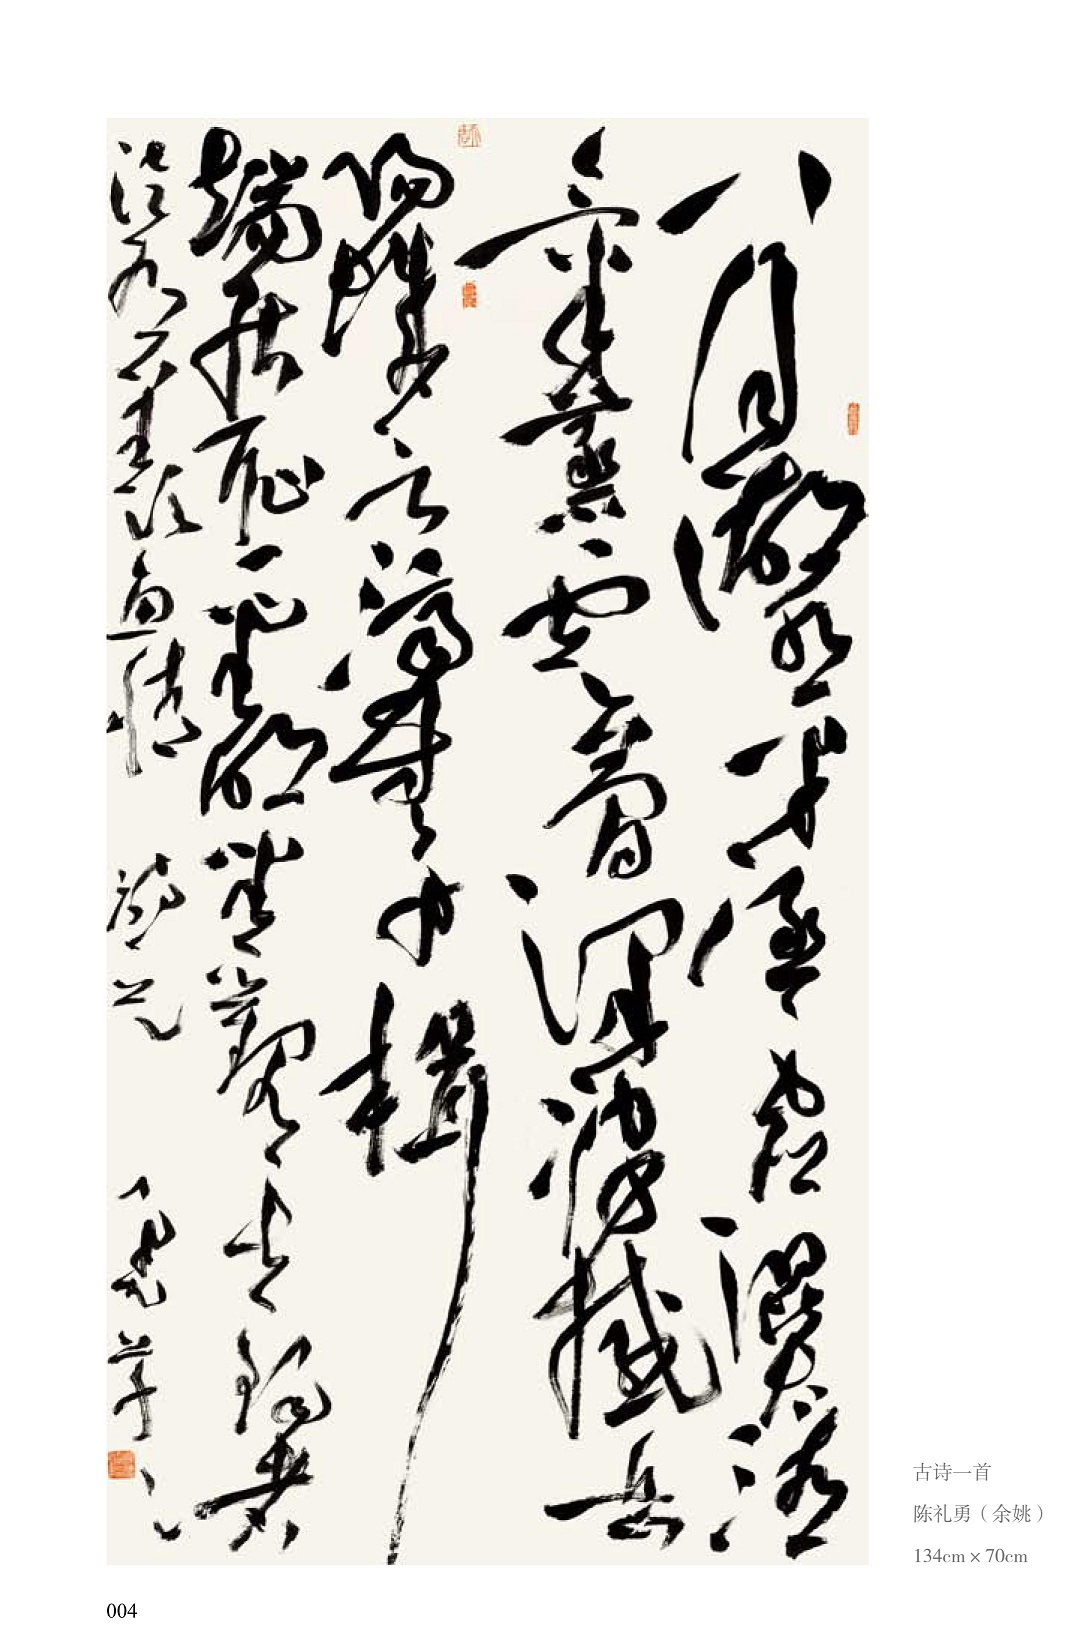 八月湖水平涵虚混太清
氣蒸雲夢澤波撼岳
陽城欲濟無舟楫
端居耻聖明坐觀垂釣者
徒有羡魚情
古诗一首
陈礼勇（余姚）
134cm × 70cm
004